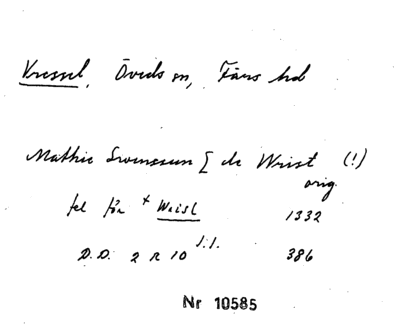 Kressel, Öveds sn, Färs hd
Mathic Svenssun [ de Wrist (!)
orig.
fel för + Wrisl 1332
D.D. 2 R 10 s.l. 386
Nr 10585